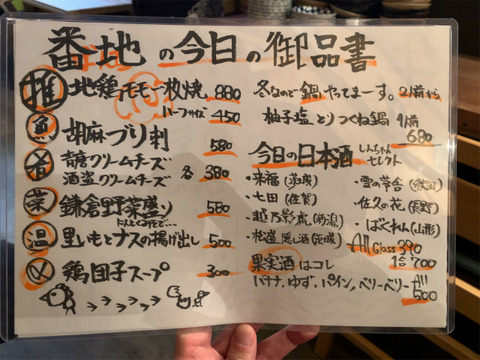 番地の今日の御品書
推 地鶏モモ一枚焼 880
ハーフサイズ 450
魚 胡麻ブリ刺 580
肴 クリームチーズ
酒盗クリームチーズ 各380
菜 鎌倉野菜盛り 580
温 里いもとナスの揚げ出し 500
〆 鶏団子スープ 300
冬なので鍋やってまーす。2人前から
柚子塩とりつくね鍋 1人前
680
今日の日本酒 しんちゃんセレクト
・来福(茨城)
・七田(佐賀)
・越乃彩虎(新潟)
・松盛 (茨城)
・雪の茅舎(秋田)
・佐久の花(長野)
・ばくれん(山形)
All Glass 390
1合 700
果実酒はコレ
バナナ、ゆず、パイン、ベリーベリー All
500